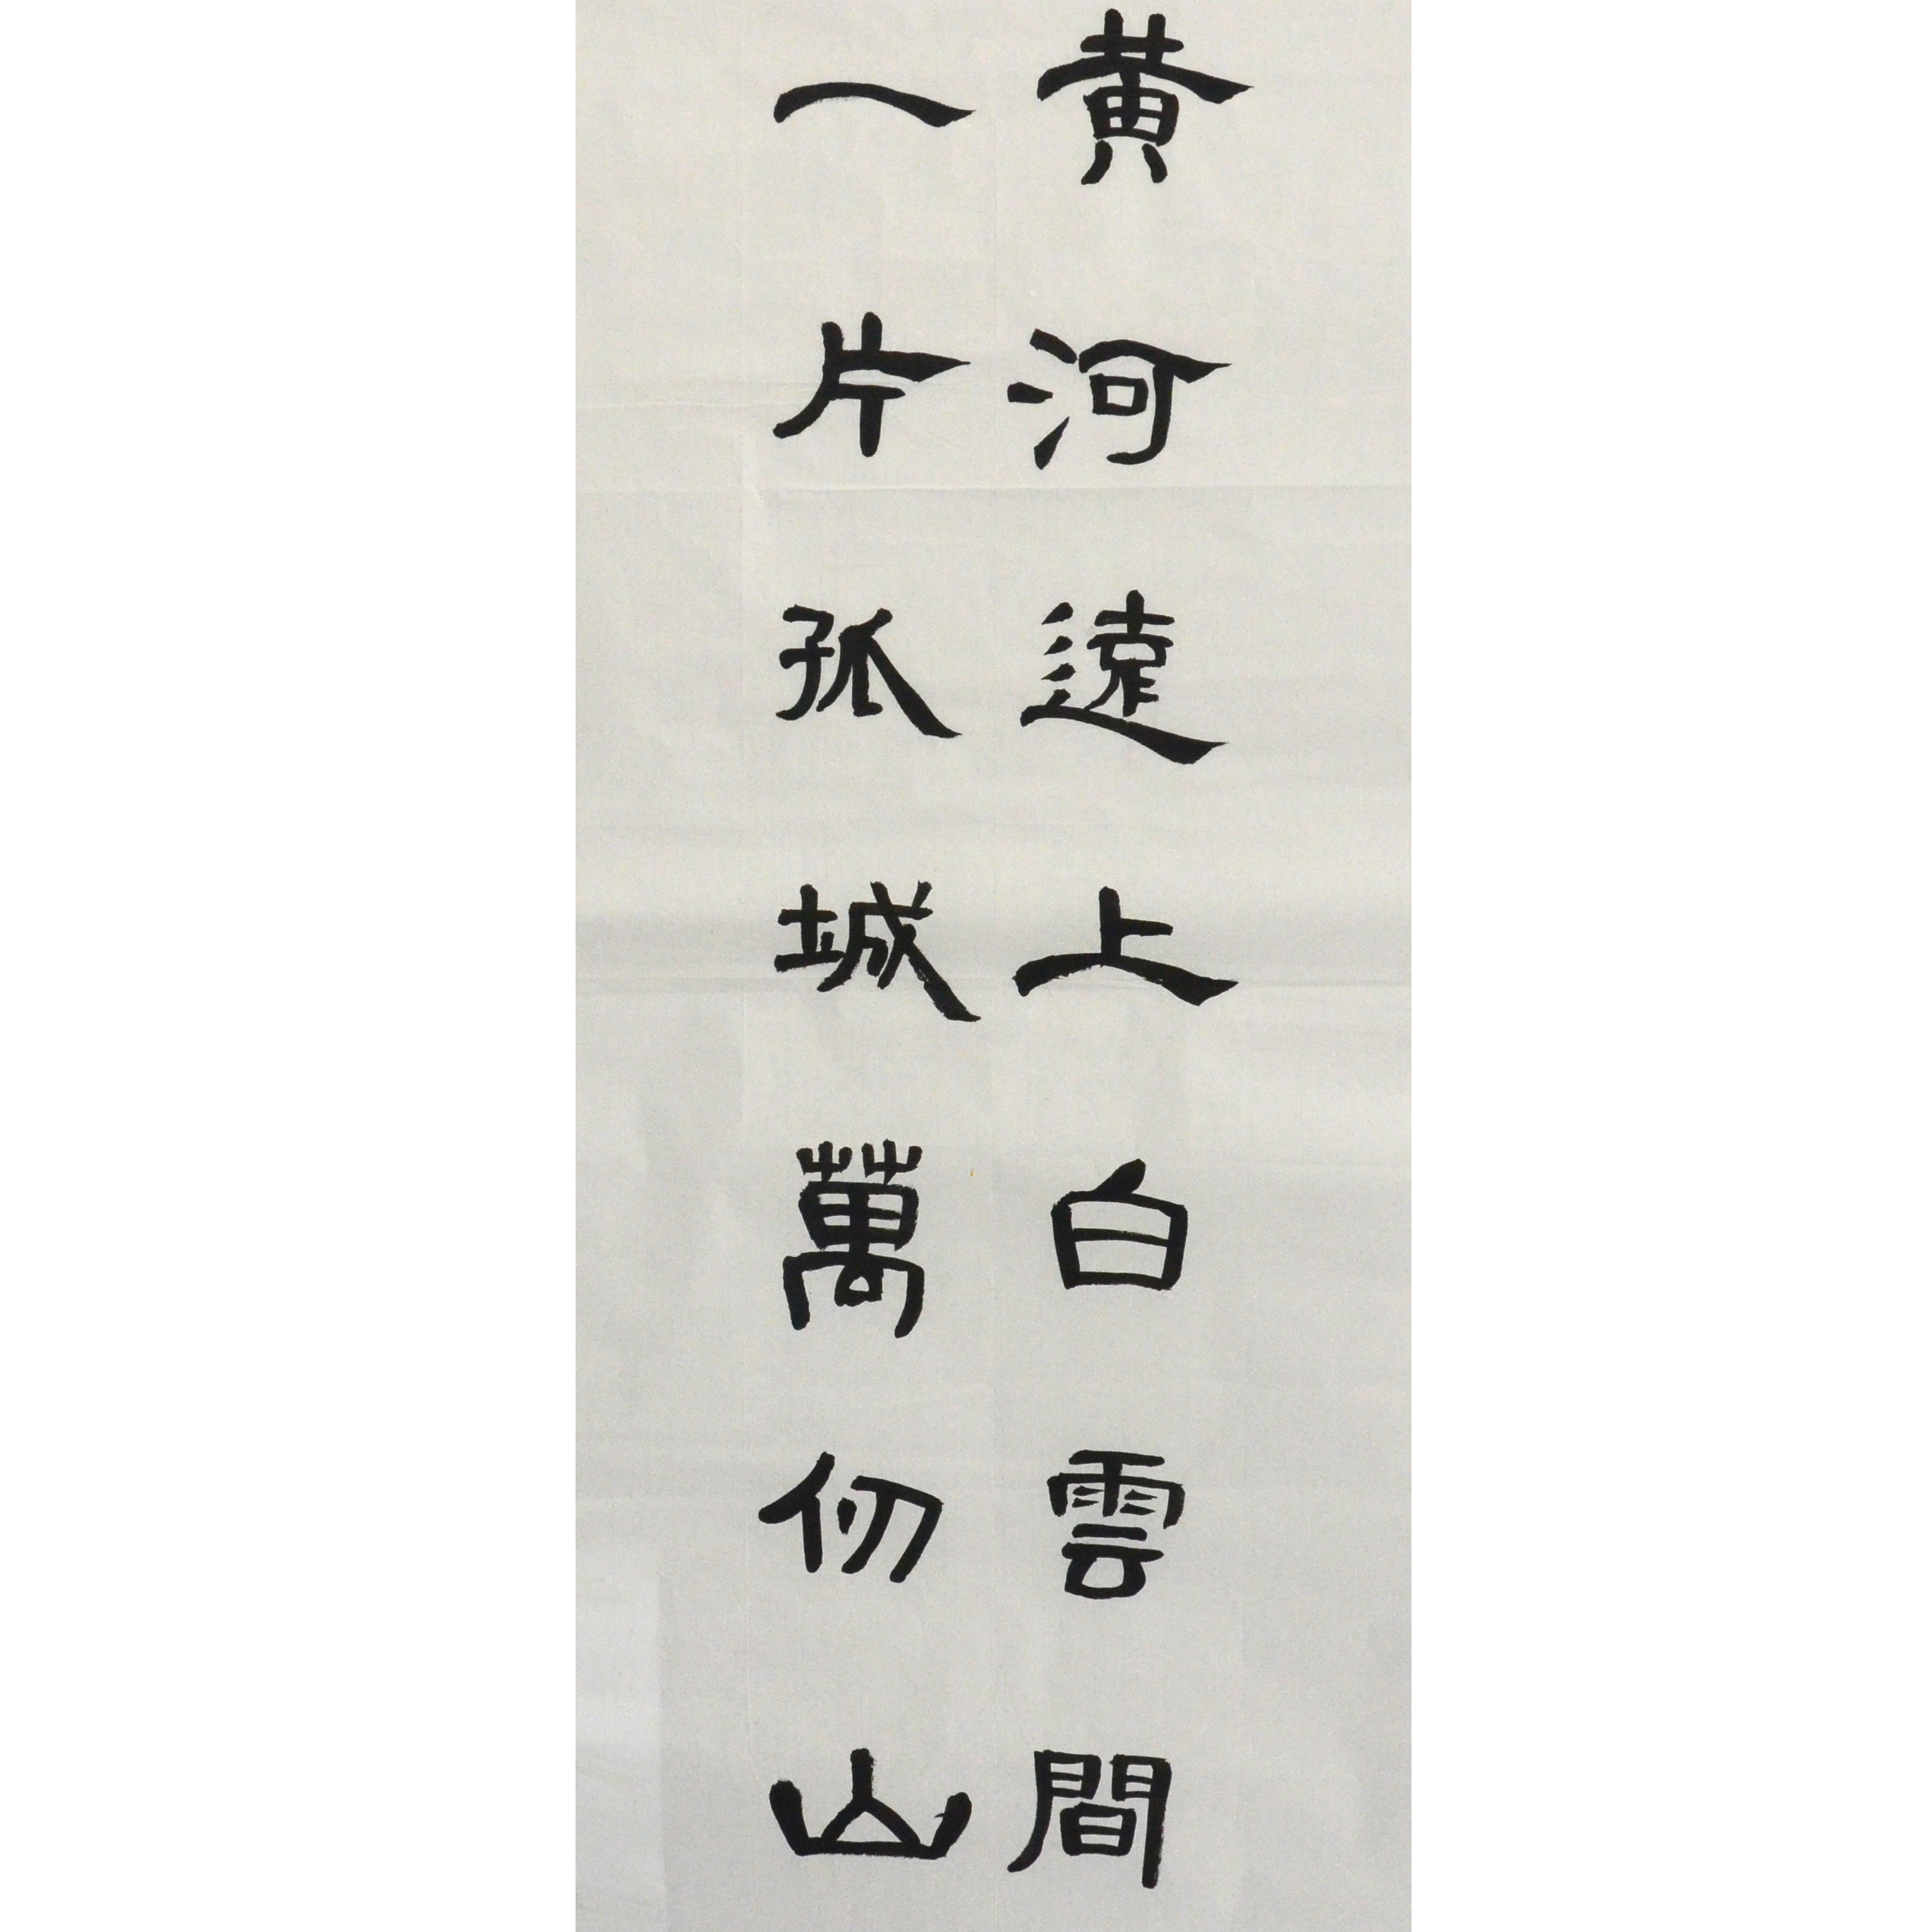 黄河遠上白雲間
一片孤城萬仞山